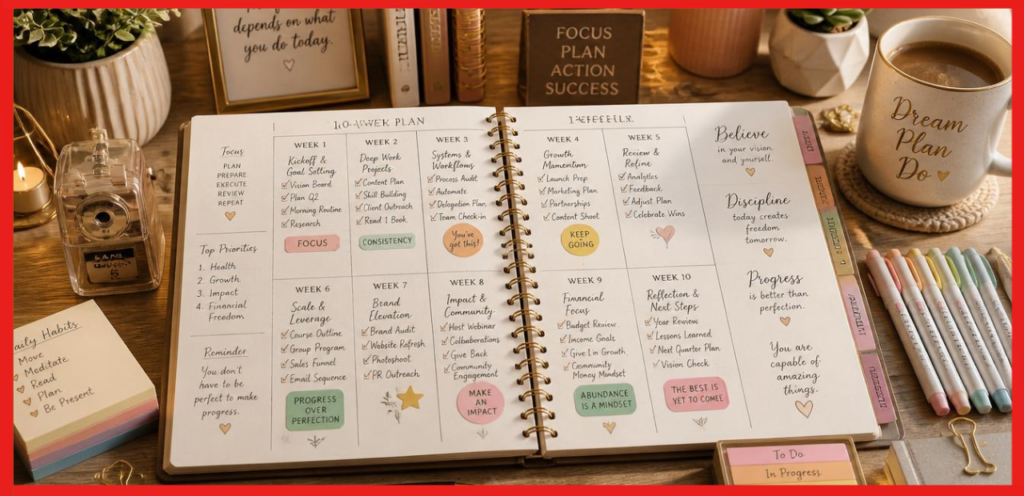 depends on what
you do today.
FOCUS
PLAN
ACTION
SUCCESS
Dream
Plan
Do
PLAN
Focus
PLAN
PREPARE
EXECUTE
REVIEW
REPEAT
Top Priorities
1. Health
2. Growth
3. Impact
4. Financial
Freedom
Reminder
You don't
have to be
perfect to make
progress.
WEEK 1
Kickoff &
Goal Setting
Vision Board
Plan Q2
Morning Routine
Research
FOCUS
WEEK 2
Deep Work
Projects
Content Plan
Skill Building
Client Outreach
Read 1 Book
CONSISTENCY
WEEK 3
Systems &
Workflows
Process Audit
Automate
Delegation Plan
Team Check-in
You've
got this!
WEEK 4
Growth
Momentum
Launch Prep
Marketing Plan
Partnerships
Content Shoot
KEEP
GOING
WEEK 5
Review &
Refine
Analytics
Feedback
Adjust Plan
Celebrate Wins
WEEK 6
Scale &
Leverage
Course Outline
Group Program
Sales Funnel
Email Sequence
PROGRESS
OVER
PERFECTION
WEEK 7
Brand
Elevation
Brand Audit
Website Refresh
Photoshoot
PR Outreach
WEEK 8
Impact &
Community
Host Webinar
Collaborations
Give Back
Community
Engagement
MAKE
AN
IMPACT
WEEK 9
Financial
Focus
Budget Review
Income Goals
Give In Growth
Community
Money Mindset
ABUNDANCE
IS A MINDSET
WEEK 10
Reflection &
Next Steps
Year Review
Lessons Learned
Next Quarter Plan
Vision Check
THE BEST IS
YET TO COME!
Believe
in your vision
and yourself.
Discipline
today creates
freedom
tomorrow.
Progress
is better than
perfection.
You are
capable of
amazing
things.
Habits
Move
Meditate
Read
Plan
Be Present
To Do
In Progress